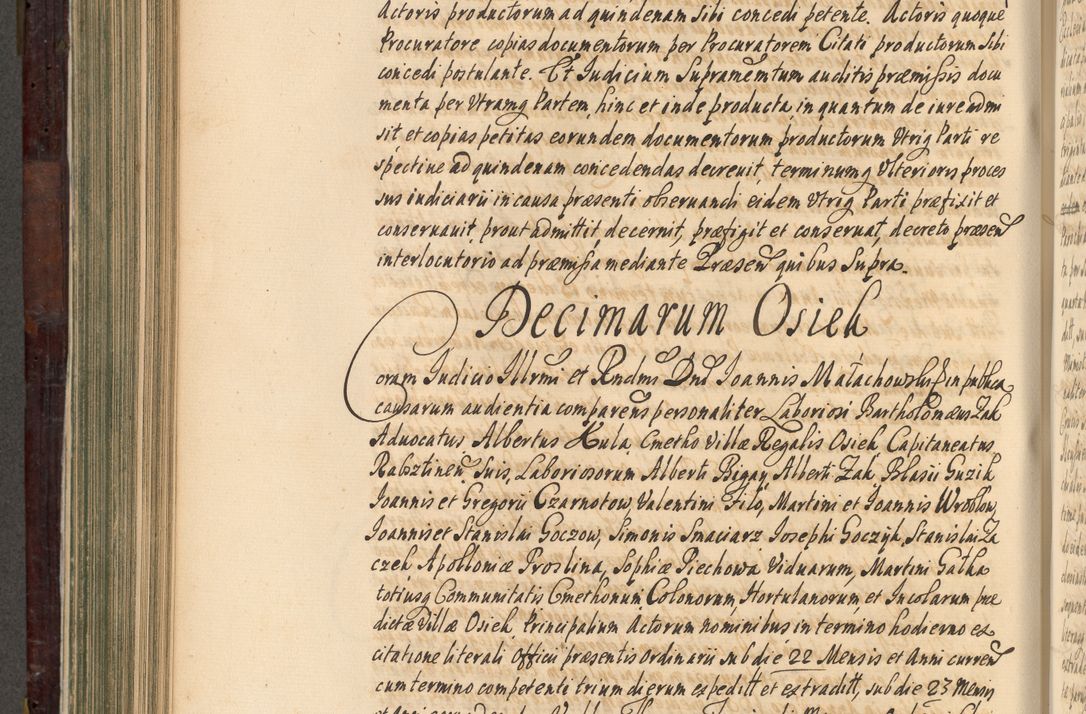 Actoris productorum ad quindenam sibi concedi petente. Actoris quoque
Procuratore copias documentorum per Procuratorem Citati productorum sibi
concedi postulante. Et Judicium Supramemtum auditis præmissis docu
menta per Utramq Partem, hinc et inde producta, in quantum de iure admi
sit et copias petitas eorundem documentorum productorum Utriq Parti re
spective ad quindenam concedendas decrevit, terminumq Ulterioris proces
sus iudiciarii in causa præsenti observandi eidem Utriq Parti præfixit et
conservavit, prout admittit, decernit, præfigit et conservat, decreto præsen
interlocutorio ad præmissa mediante Præsen quibus Supra.
Decimarum Osiek
Coram Judicio Illrmi et Rndmi Dni Joannis Małachowski in publica
causarum audientia comparens personaliter Laboriosi Bartholomæus Zak
Advocatus Albertus Kula, Cmetho Villæ Regalis Osiek, Capitaneatus
Rabsztinen, suis, Laboriosorum Alberti Bigay, Alberti Zak, Blasii Guzik
Joannis et Gregorii Czarnotow, Valentini Filo, Martini et Joannis Wroblow,
Joannis et Stanislai Goczow, Simonis Smaciarz Josephi Goczyk, Stanislai Za
czek Apolloniæ Proslina, Sophiæ Piechowa Viduarum, Martini Gałka
totiusq Communitatis Cmethonum, Colonorum, Hortulanorum et Incolarum præ
dictæ Villæ Osiek, Principalium Actorum nominibus in termino hodierno ex
citatione literali Officii præsentis Ordinarii sub die 22 Mensis et Anni curren
cum termino competenti trium dierum expeditt et extraditt, sub die 23 Mensis